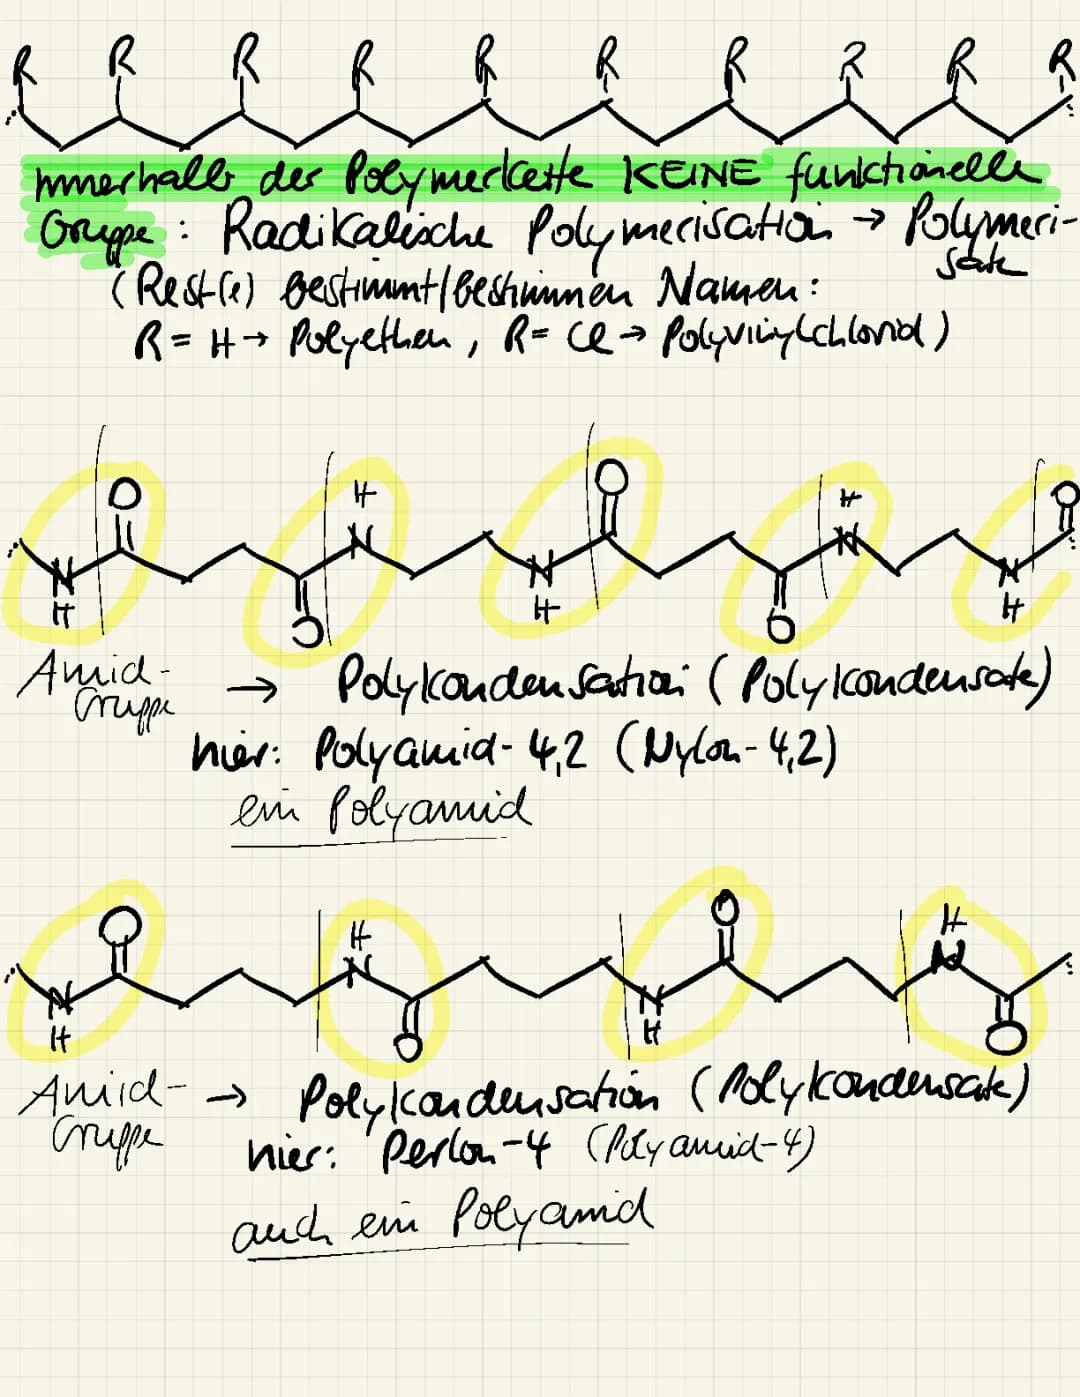 R R R R R R R R R R
Innerhalb der Polymerkette KEINE funktionelle
Gruppe : Radikalische Polymerisation → Polymeri-
sate
(Rest(e) bestimmt/bestimmen Namen :
R = H → Polyethen , R = Cl → Polyvinylchlorid )
O H O H O
N N N N N
H O H O H
Amid- → Polykondensation ( Polykondensate)
Gruppe
hier: Polyamid- 4,2 (Nylon- 4,2)
ein Polyamid
O H O H
N N N N
H O H O
Amid- → Polykondensation ( Polykondensate)
Gruppe
hier: Perlon-4 (Polyamid-4)
auch ein Polyamid